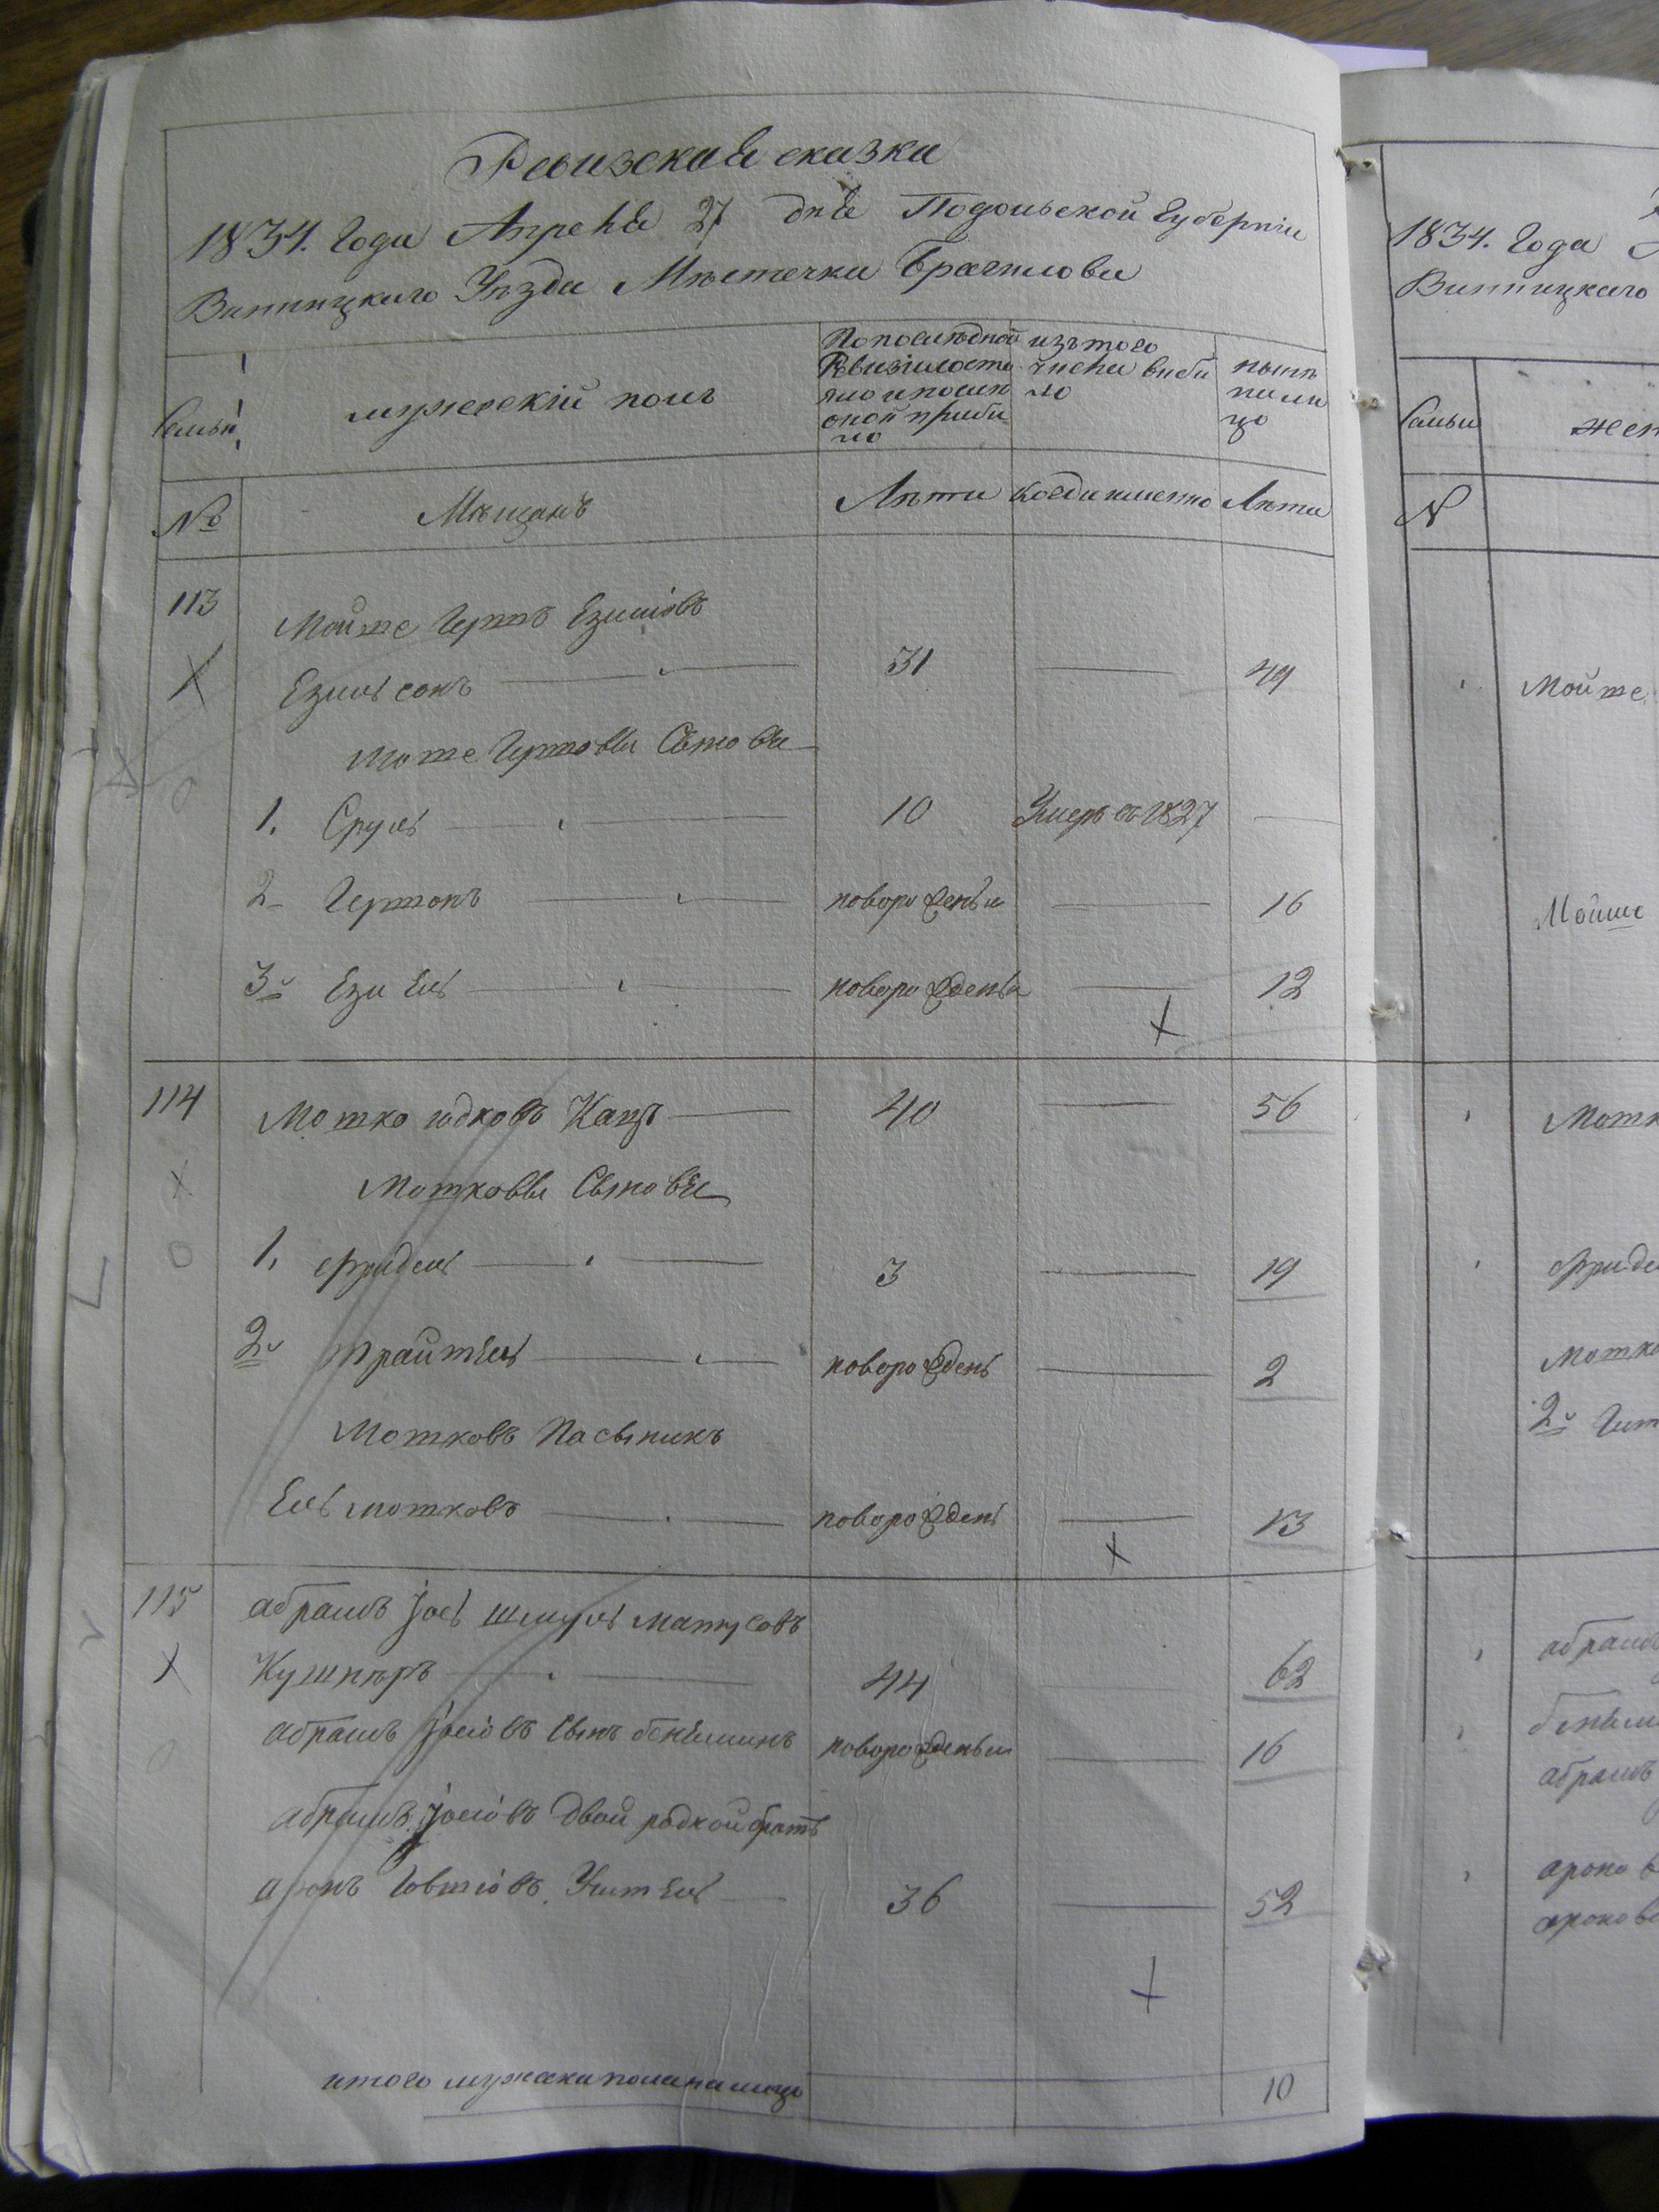 Ревизская сказка
1834. Года Апреля 27 дня Подольской Губерніи
Винницкаго Уѣзда Мѣстечка Браилова
Семьи
мужескій полъ
По последной ревизіи состояло и послѣ оной прибыло
изъ того числа выбыло
нынѣ на лицо
№
Мѣщанъ
Лѣта
когда именно
Лѣта
113
Мойше Герш Езиловъ
Езильсонъ 31 49
Моше Гершовы Сыновья
1. Сруль 10 Умеръ въ 1827
2 Гершонъ новорожденъ 16
3й Езиель новорожденъ 12
114 Мошко юдковъ Кацъ 40 56
Мошковы Сыновья
1. фридель 3 19
2й трайтель новорожденъ 2
Мошковъ Пасынокъ
Ель мошковъ новорожденъ 13
115 абрамъ Іось шмуль матусовъ
Кушнѣръ 44 62
абрамъ Іосіовъ сынъ беньяминъ новорожденъ 16
абрамъ Іосіовъ двоюродной братъ
аронъ 36 52
итого мужеска пола на лицо 10
1834. Года
Винницкаго
Семьи
жен
N
Мойше
Мойше
Мошк
фриде
Мошко
2й
абрамъ
беньям
абрамъ
ароно
ароново